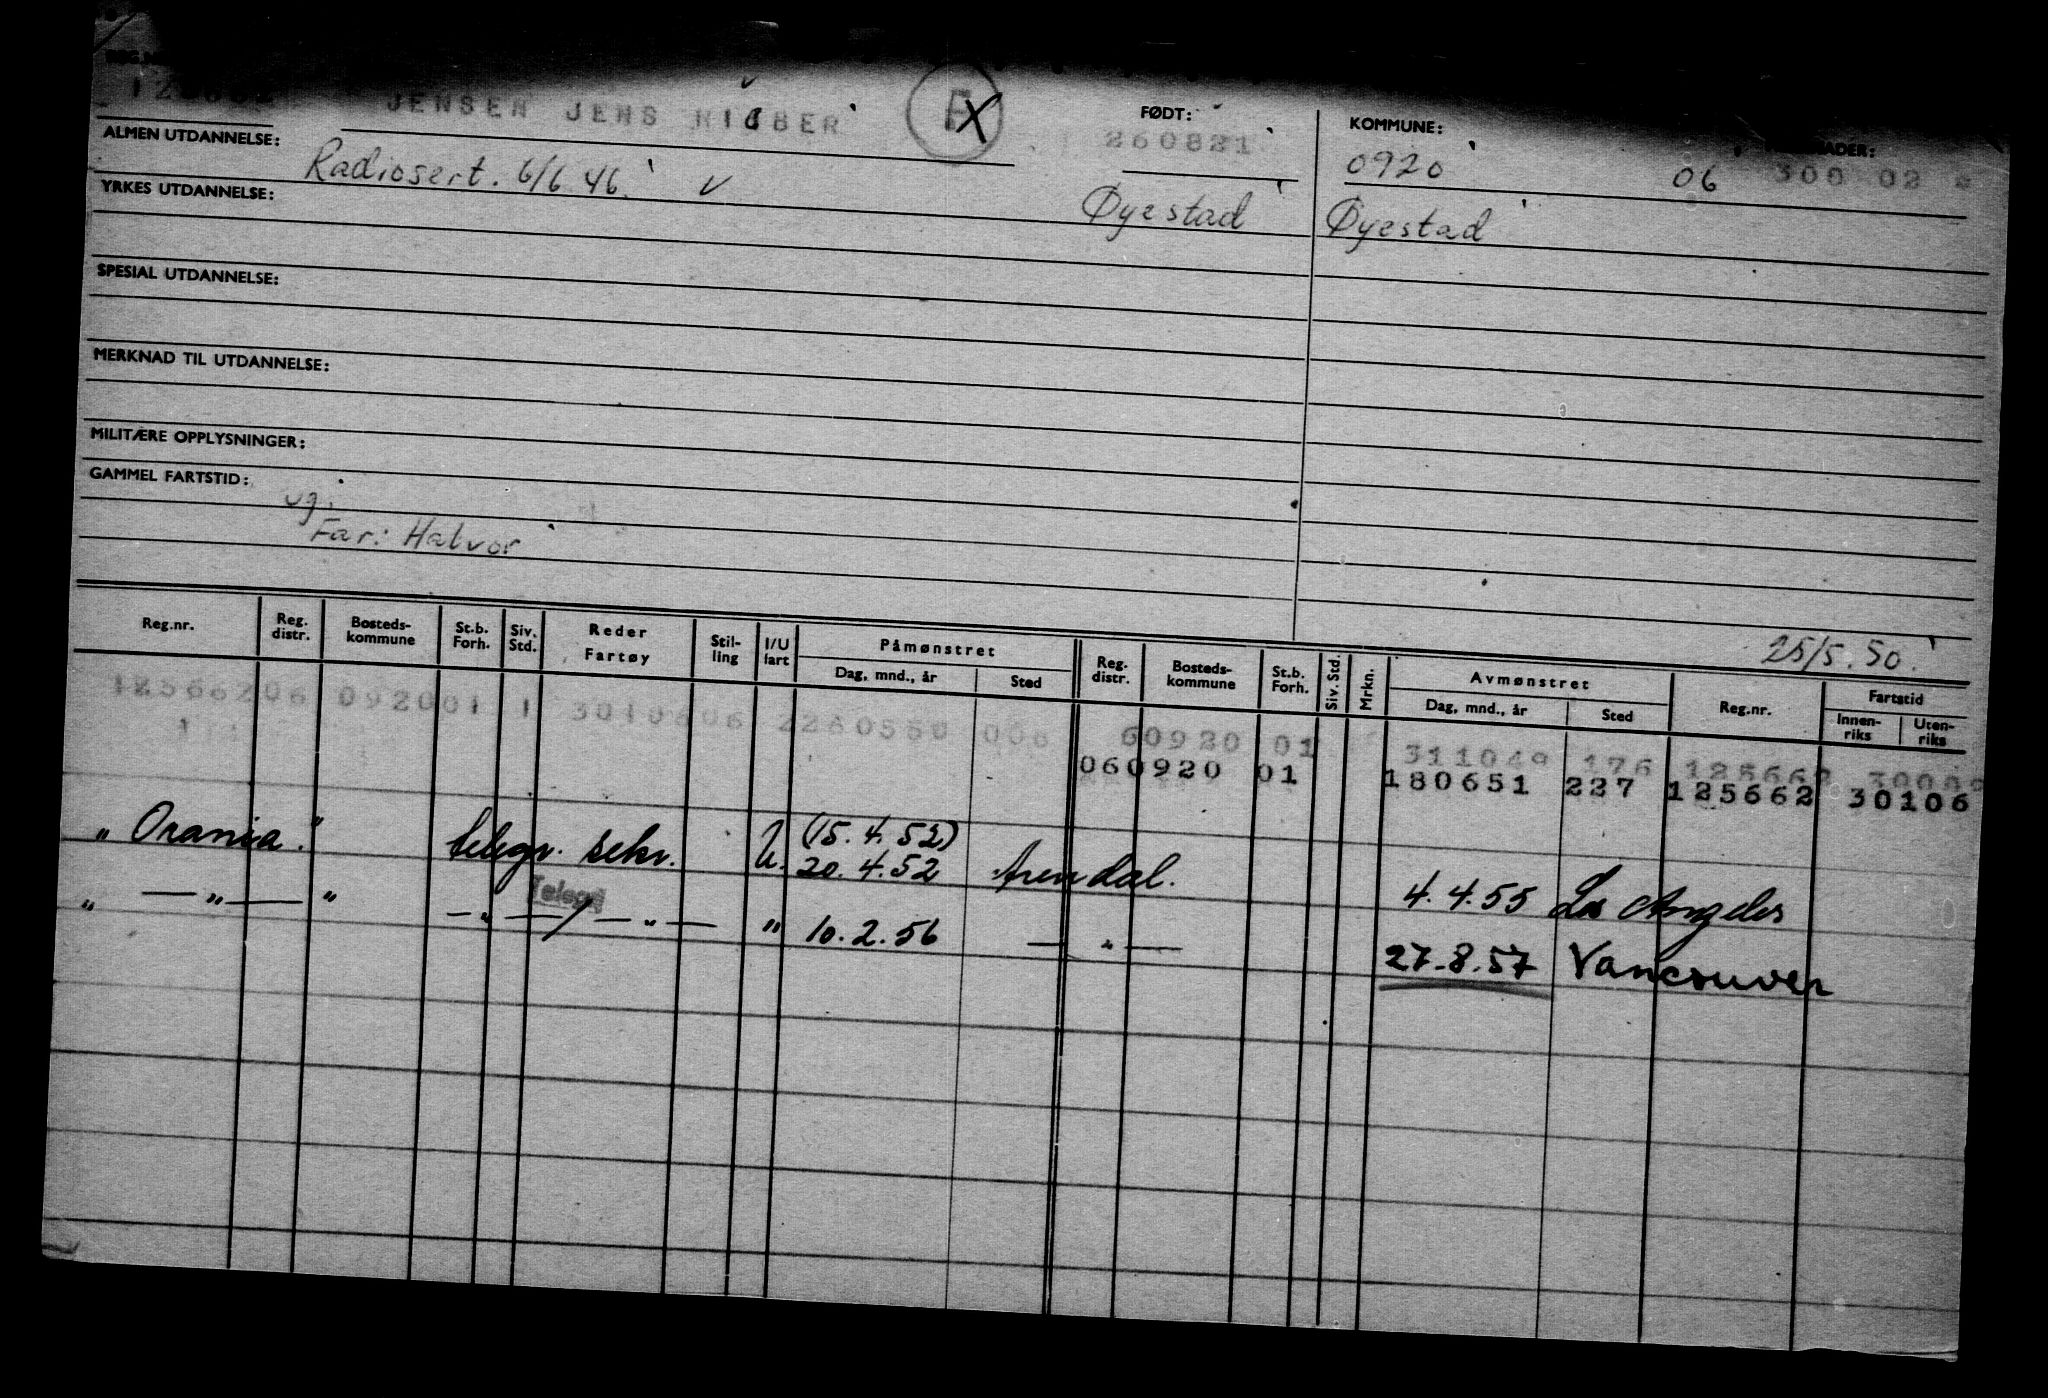 JENSEN JENS
FØDT:
KOMMUNE:
ALMEN UTDANNELSE:
260821
0920 06 300 02
Radiosert. 6/6 46. v
YRKES UTDANNELSE:
Øyestad
Øyestad
SPESIAL UTDANNELSE:
MERKNAD TIL UTDANNELSE:
MILITÆRE OPPLYSNINGER:
GAMMEL FARTSTID:
ug.
Far: Halvor
25/5.50.
Reg.nr. Reg. distr. Bosteds-kommune St.b. Forh. Siv. Std. Reder Fartøy Stil-ling I/U fart Påmønstret Dag, mnd., år Sted Reg. distr. Bosteds-kommune St.b. Forh. Siv. Std. Mrkn. Avmønstret Dag, mnd., år Sted Reg.nr. Fartstid Innen-riks Uten-riks
12566206 092001 1 60920 01 311049 176 125662
060920 01 180651 227 125662 30106
" Orania." telegr. sekr. U. (15.4.52)
20.4.52 Arendal. 4.4.55 Los Angeles
Telegr
" — " — " — " — / — " — " 10.2.56 — " — 27.8.57 Vancouver